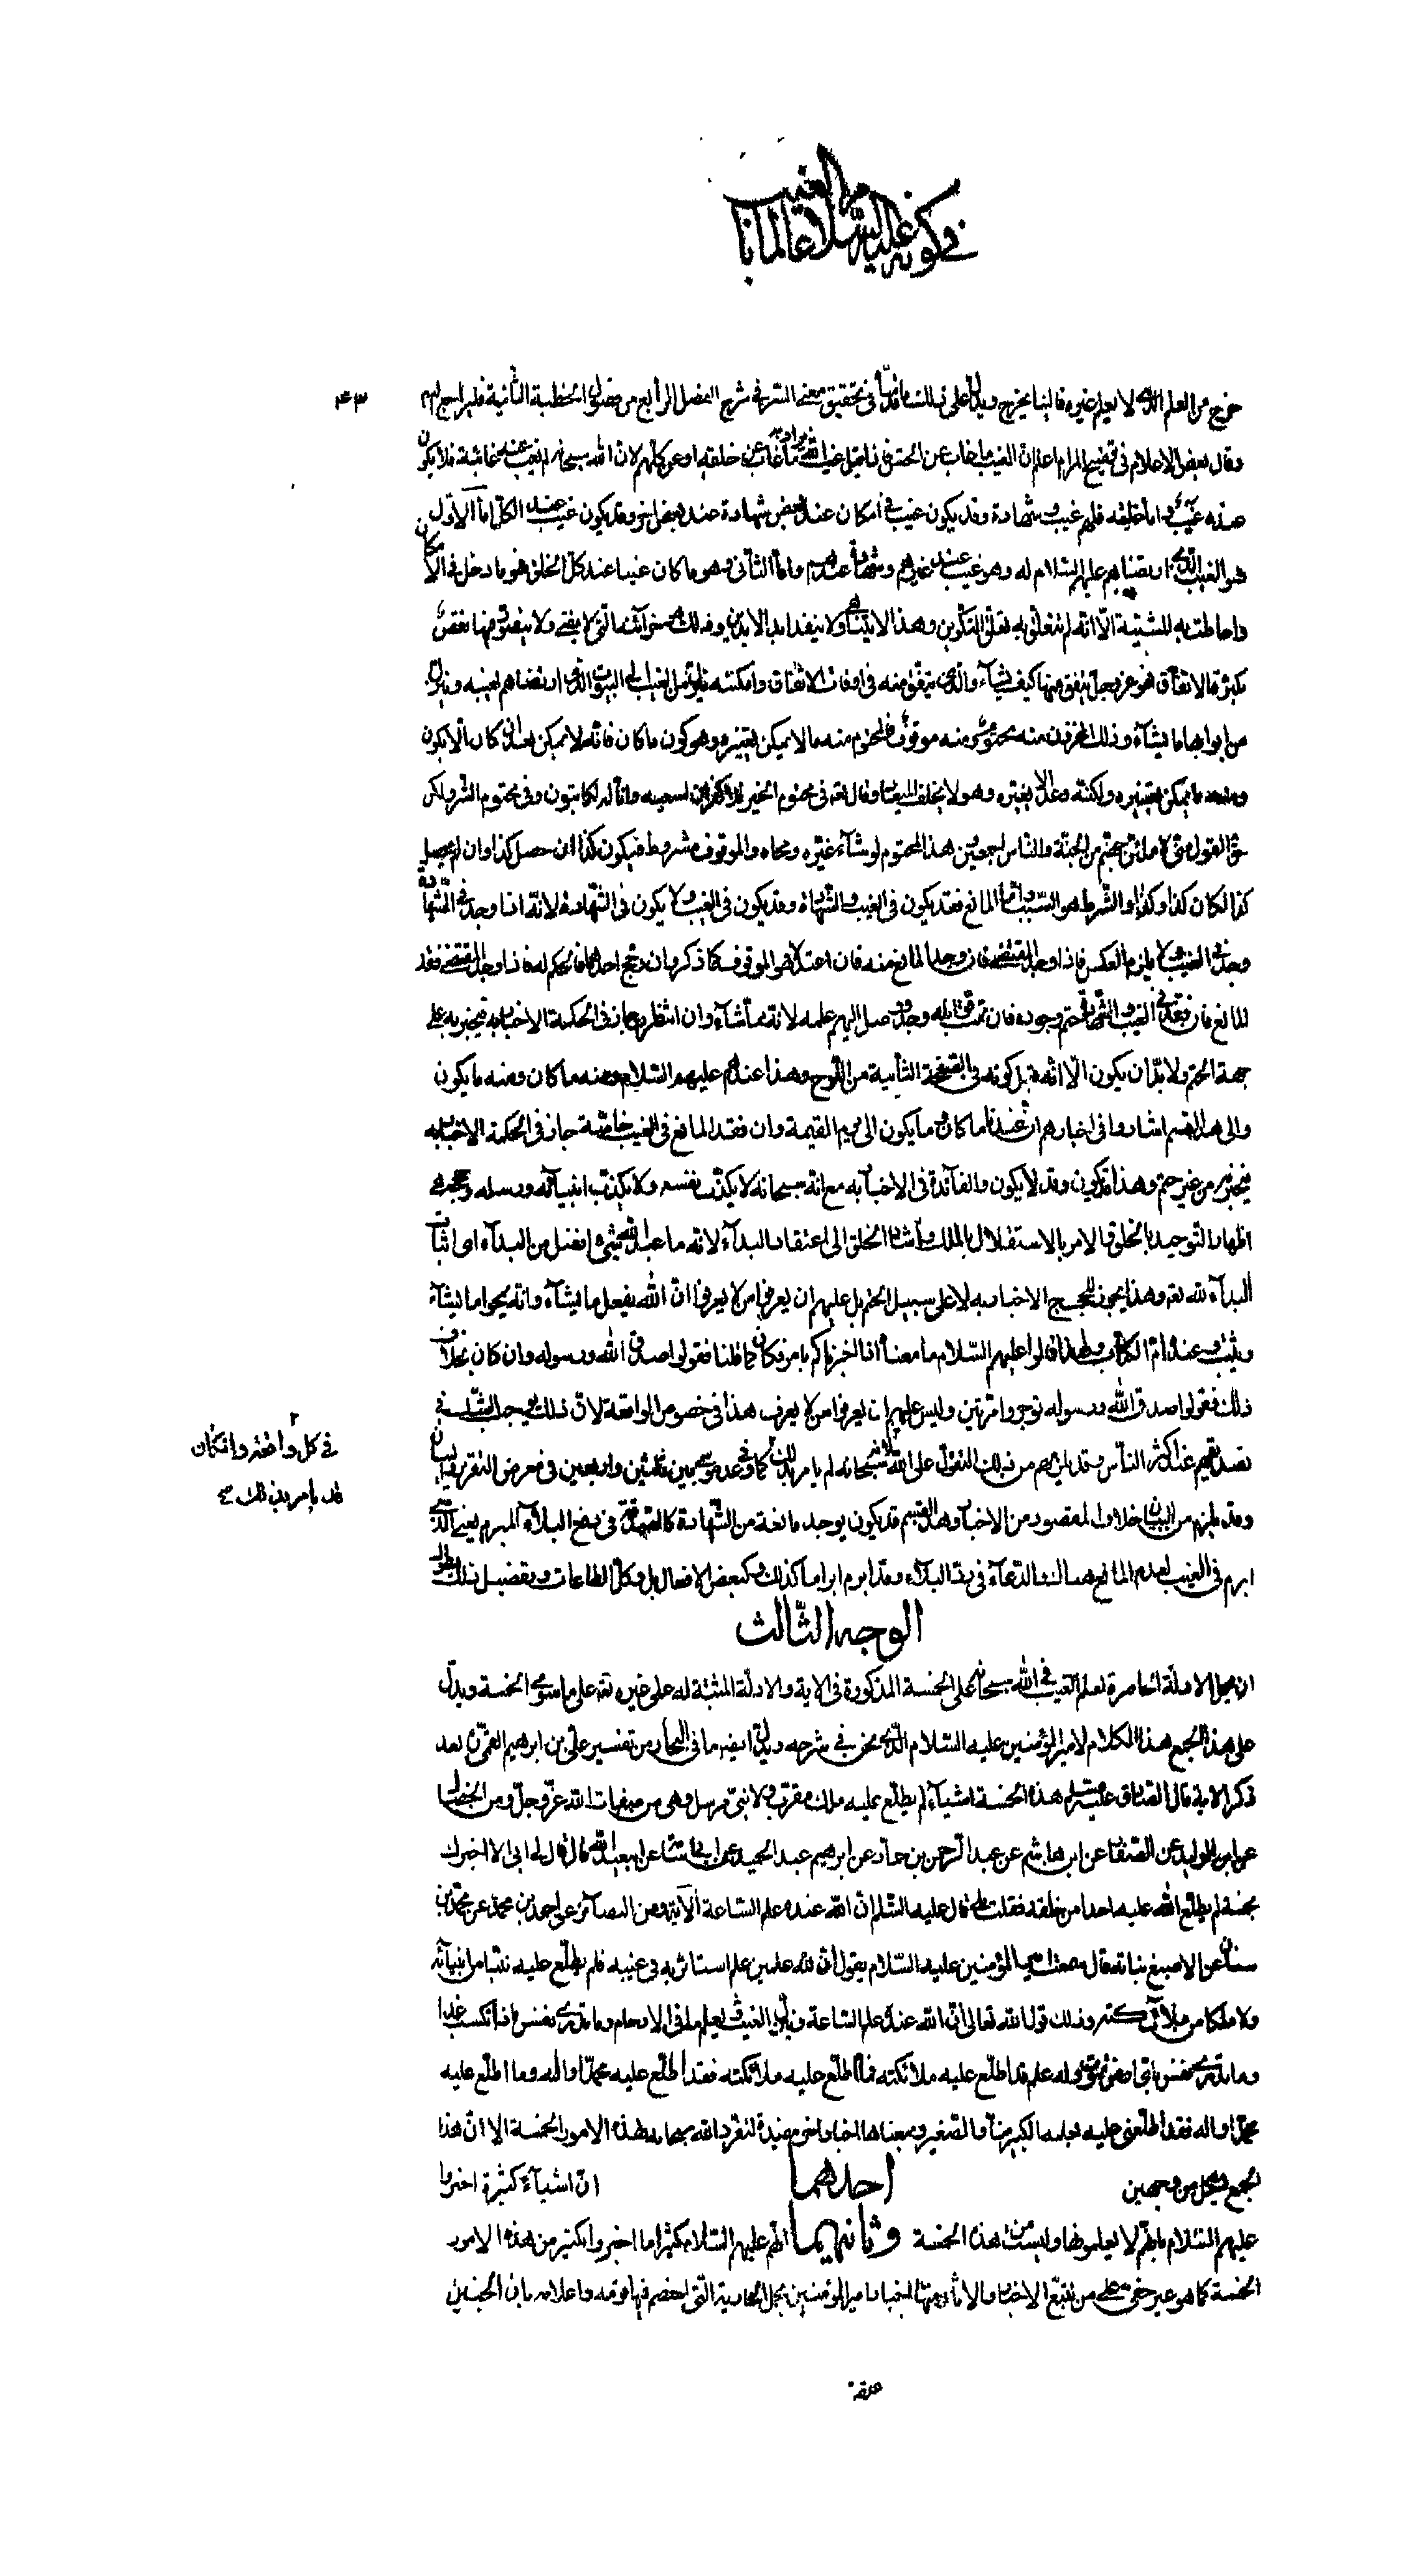 في كونه عليه السلام عالما بالغيب
خرج من العلم الذي لا يعلم غيره فالينا يخرج ويدل على ذلك ما قدمنا في تحقيق معنى السر في شرح الفصل الرابع من فصول الخطبة الثانية فليراجع
وقال بعض الاعلام في توضيح المرام اعلم ان الغيب ما غاب عن الحس فاذا قيل غيب الله يراد به ما غاب عن خلقه او عن كلهم لان الله سبحانه لم يغب عنه غائبة فلا يكون
عنده غيب واما خلقه فلهم غيب وشهادة وقد يكون غيب في امكان عند بعض شهادة عند بعض اخر وقد يكون غيب عند الكل اما الاول
هو الغيب الذي ارتضاهم عليهم السلام له وهو غيب عند غيرهم وشهادة عندهم واما الثاني وهو ما كان غيبا عند كل الخلق هو ما دخل في الامكان
واحاطت به المشية الا انه لم تتعلق به تعلق التكوين وهذا لا يتناهى ولا ينفد ابد الابدين وذلك هو خزائنه التي لا يفنى ولا ينقص منها بعض
بكثرة الانفاق هو عز وجل ينفق منها كيف يشاء والذي ينفق منه في اوقات الانفاق وامكنته من الغيب الى البيوت الذي ارتضاهم لغيبه وينزل
من ابوابها ما يشاء وذلك المخزون منه محتوم ومنه موقوف فالمحتوم منه ما لا يمكن تغييره وهو كون ما كان فانه لا يمكن بعد ان كان ان لا يكون
ومنه ما يمكن تغييره ولكنه وعد الا يغيره وهو لا يخلف الميعاد وقال تعه في محتوم الخير فلا كفران لسعيه وانا له لكاتبون وفي محتوم الشر ولكن
حق القول مني لاملان جهنم من الجنة والناس اجمعين هذا المحتوم لو شاء غيره ومحاه والموقوف مشروط فيكون كذا ان حصل كذا وان لم يحصل
كذا لكان كذا وكذا والشرط هو السبب واما المانع فقد يكون في الغيب والشهادة وقد يكون في الغيب ولا يكون في الشهادة لانه اذا وجد في الشهادة
وجد في الغيب ولا يلزم العكس فاذا وجد المقتضى فان وجد المانع منه فان اعتدلا هو الموقوف كما ذكر وان رجح احدهما فالحكم له فاذا وجد المقتضى فقد
المانع فان فقد في الغيب والشهادة حتم وجوده فان تمت قوابله وجد ووصل اليهم علمه لانه مما شاء وان انتظر بها جاز في الحكمة الاخبار به فيخبر به على
جهة الحتم ولا بد ان يكون الا انه قبل كونه في الصفحة الثانية من اللوح وهذا عندهم عليهم السلام ومنه ما كان ومنه ما يكون
والى هذا القسم اشاروا في اخبارهم ان عندنا ما كان وما يكون الى يوم القيمة وان فقد المانع في الغيب خاصة جاز في الحكمة الاخبار به
فيخبر به من غير حتم وهذا قد يكون وقد لا يكون والفائدة في الاخبار به مع انه سبحانه لا يكذب نفسه ولا يكذب انبيائه ورسله وحججه
اظهار التوحيد بالخلق والامر بالاستقلال بالملك وارشاد الخلق الى اعتقاد البداء لانه ما عبد الله بشيء افضل من البداء اي اثبات
البداء لله تعه وهذا يجوز للحجج الاخبار به لا على سبيل الحتم بل عليهم ان يعرفوا من لا يعرف ان الله يفعل ما يشاء وانه يمحو ما يشاء
ويثبت وعنده ام الكتاب ولهذا قالوا عليهم السلام ما معناه انا اذا اخبرناكم بامر فكان كما قلنا فقولوا صدق الله ورسوله وان كان بخلاف
ذلك فقولوا صدق الله ورسوله توجروا مرتين وليس عليهم ان يعرفوا من لا يعرف هذا في خصوص الواقعة لان ذلك يوجد الشك في
تصديقهم عند اكثر الناس وقد يلزمهم من ذلك التقول على الله لانه سبحانه لم يامر بذلك كما في وعد موسى بين ثلثين واربعين في معرض التقرير
وقد يلزم من البيان خلاف المقصود من الاخبار وهذا القسم قد يكون يوجد مانعه من الشهادة كالصدقة في دفع البلاء المبرم يعني الذي
ابرم في الغيب لعدم المانع هنالك والدعاء في رد البلاء وقد ابرم ابراما كذلك وكبعض الافعال بل وكل الطاعات وتفصيل ذلك يطول
الوجه الثالث
ان يحمل الادلة الحاصرة لعلم الغيب في الله سبحانه على الخمسة المذكورة في الاية والادلة المثبتة له على غيره تعه على ما سوى الخمسة ويدل
على هذا الجمع هذا الكلام لامير المؤمنين عليه السلام الذي نحن في شرحه ويدل ايضه ما في البحار من تفسير علي بن ابرهيم القمي بعد
ذكر الاية قال الصادق عليه السلم هذه الخمسة اشياء لم يطلع عليه ملك مقرب ولا نبي مرسل وهي من صفات الله عز وجل ومن الخصال
عن ابن الوليد عن الصفار عن ابن هاشم عن عبد الرحمن بن حماد عن ابرهيم عبد الحميد عن ابي اسامة عن ابيعبد الله قال قال لي ابي الا اخبرك
بخمسة لم يطلع الله عليه احدا من خلقه فقلت بلى قال عليه السلم ان الله عنده علم الساعة الآية ومن البصائر عن احمد بن محمد عن محمد بن
سنان عن الاصبغ نباتة قال سمعت امير المؤمنين عليه السلام يقول ان لله علمين علم استاثر به في غيبه فلم يطلع عليه نبيا من انبيائه
ولا ملكا من ملائكته وذلك قول الله تعالى ان الله عنده علم الساعة وينزل الغيث ويعلم ما في الارحام وما تدري نفس ماذا تكسب غدا
وما تدري نفس باي ارض تموت وله علم قد اطلع عليه ملائكته فما اطلع عليه ملائكته فقد اطلع عليه محمدا واله وما اطلع عليه
محمدا واله فقد اطلعني عليه يعلمه الكبير منا والصغير وبمعناها اخبار اخر مفيدة لتفرد الله سبحانه بهذه الامور الخمسة الا ان هذا
الجمع يشكل من وجهين احدهما ان اشياء كثيرة اخبروا
عليهم السلام بانهم لا يعلمونها وليست من هذه الخمسة وثانيهما انهم عليهم السلام كثيرا ما اخبروا بكثير من هذه الامور
الخمسة كما هو غير خفي على من تتبع الاخبار والاثار ومنها اخبار امير المؤمنين بمحل المحاربة التي اعصم فيها قومه واعلامه بان الحسين
في كل واحد
قد يامر بذلك صح